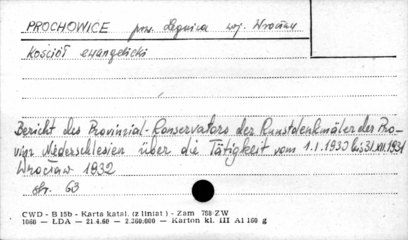 PROCHOWICE pow. Legnica woj. Wrocław
Kościół ewangelicki
Bericht des Provinzial-Konservators der Kunstdenkmäler der Pro-
vinz Niederschlesien über die Tätigkeit vom 1.I.1930 bis 31.XII.1931
Wrocław 1932
str. 63
CWD - B 15b - Karta katal. (z liniat) - Zam 788 ZW
1060 - ŁDA - 21.4.60 - 2.360.000 - Karton kl. III A1 160 g